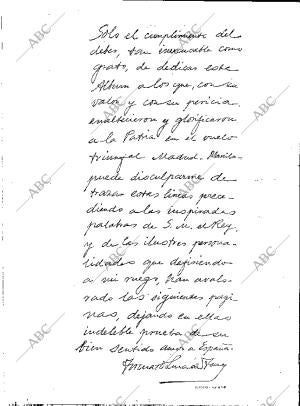 Solo el cumplimiento del
deber, tan inexcusable como
grato, de dedicar este
Album a los que, con su
valor y con su pericia
enaltecieron y glorificaron
a la Patria en el vuelo
triunfal Madrid-Manila
puede disculparme de
trazar estas líneas prece-
diendo a las inspiradas
palabras de S. M. el Rey,
y de las ilustres persona-
lidades que defiriendo
a mi ruego, han avalo-
rado las siguientes pági-
nas, dejando en ellas
indeleble prueba de su
bien sentido amor a España.
Luca de Tena